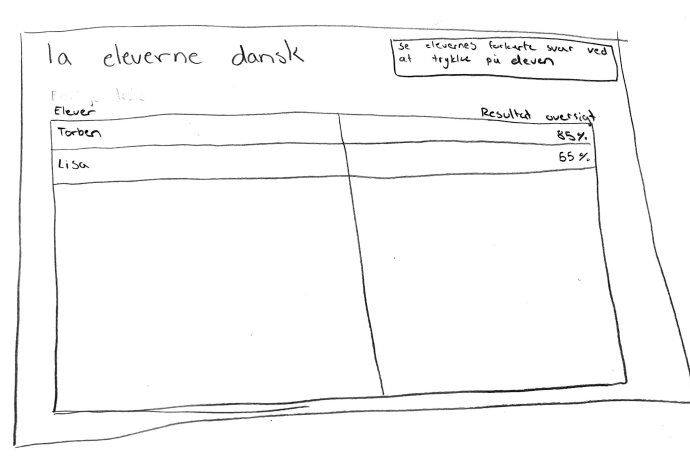 1a eleverne dansk
se elevernes forkerte svar ved
at trykke på eleven
Elever
Resultat oversigt
Torben
85%
Lisa
65%